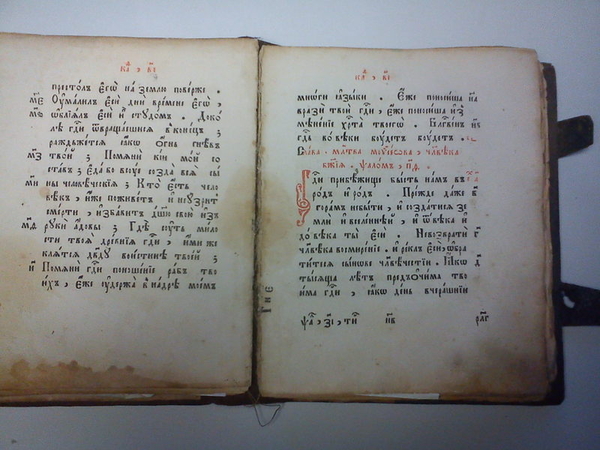 каѳ, вı
престолъ є҆гѡ̀ на землю поверже.
м҃е Оу҆малилъ є҆сѝ дни времене є҆гѡ̀,
ѡ҆блїѧлъ є҆сѝ и҆ студомъ. Доко
лѣ гд҇и ѿвращаешисѧ в конецъ;
раждежетсѧ ꙗ҆кѡ ѻ҆гнь гнѣвъ
м҃з твой; Помѧнѝ кїй мой со
ставъ; є҆да бо всуе созда всѧ сы
м҃и ны челвѣческїѧ; Кто є҆сть чело
вѣкъ, и҆же поживетъ и҆ неузритъ
смерти, и҆збавитъ дш҃у свою и҆зъ
м҃ѳ руки а҆довы; Гдѣ суть мило
сти твоѧ древнїѧ гд҇и, и҆мже
клѧтсѧ дв҃ду воистинѣ твоей;
н҃ Помѧнѝ гд҇и поношенїе рабъ тво
и҆хъ, є҆же оудержа в нѣдрѣ моемъ
каѳ, вı
многи ꙗ҆зыки. Є҆же поносиша
врази твои гд҇и, є҆же поносиша и҆з
мѣненїю хр҇та твоегѡ̀. Бл҃гвенъ
гд҇ь во вѣки будетъ будетъ.
Слава. млтва мѡѷсеова, чл҃вѣка
бж҃їѧ. ѱаломъ, п҃ѳ.
Гд҇и прибѣжище бысть намъ въ
родъ и҆ родъ. Прежде даже
горамъ небыти, и҆ создатисѧ зе
млѝ и҆ вселеннѣй и҆ ѿвѣка и҆
до вѣка ты є҆сѝ. Невозврати
чл҃вѣка восмиренїе. и҆ реклъ є҆сѝ ѡ҆бра
титесѧ сынове члвѣчестїи. Ꙗ҆кѡ
тысѧща лѣтъ предъочима тво
и҆ма гд҇и, ꙗ҆кѡ день вчерашнїй
рл҃г